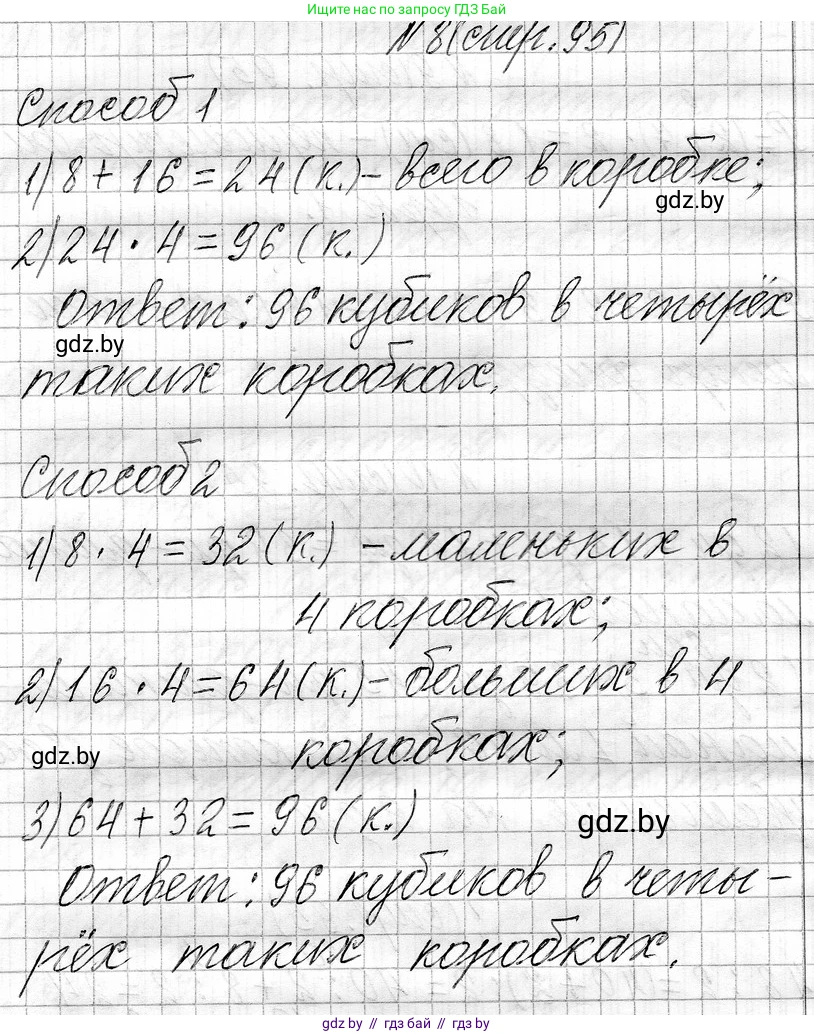 Ищите нас по запросу ГДЗ Бай
№ 8 (стр. 95)
Способ 1
1) 8 + 16 = 24 (к.) - всего в коробке;
gdz.by
2) 24 · 4 = 96 (к.)
Ответ: 96 кубиков в четырёх
gdz.by
таких коробках.
Способ 2
1) 8 · 4 = 32 (к.) - маленьких в
4 коробках;
2) 16 · 4 = 64 (к.) - больших в 4
gdz.by
коробках;
3) 64 + 32 = 96 (к.)
gdz.by
Ответ: 96 кубиков в четы-
рёх таких коробках.
gdz.by // гдз бай // gdz.by